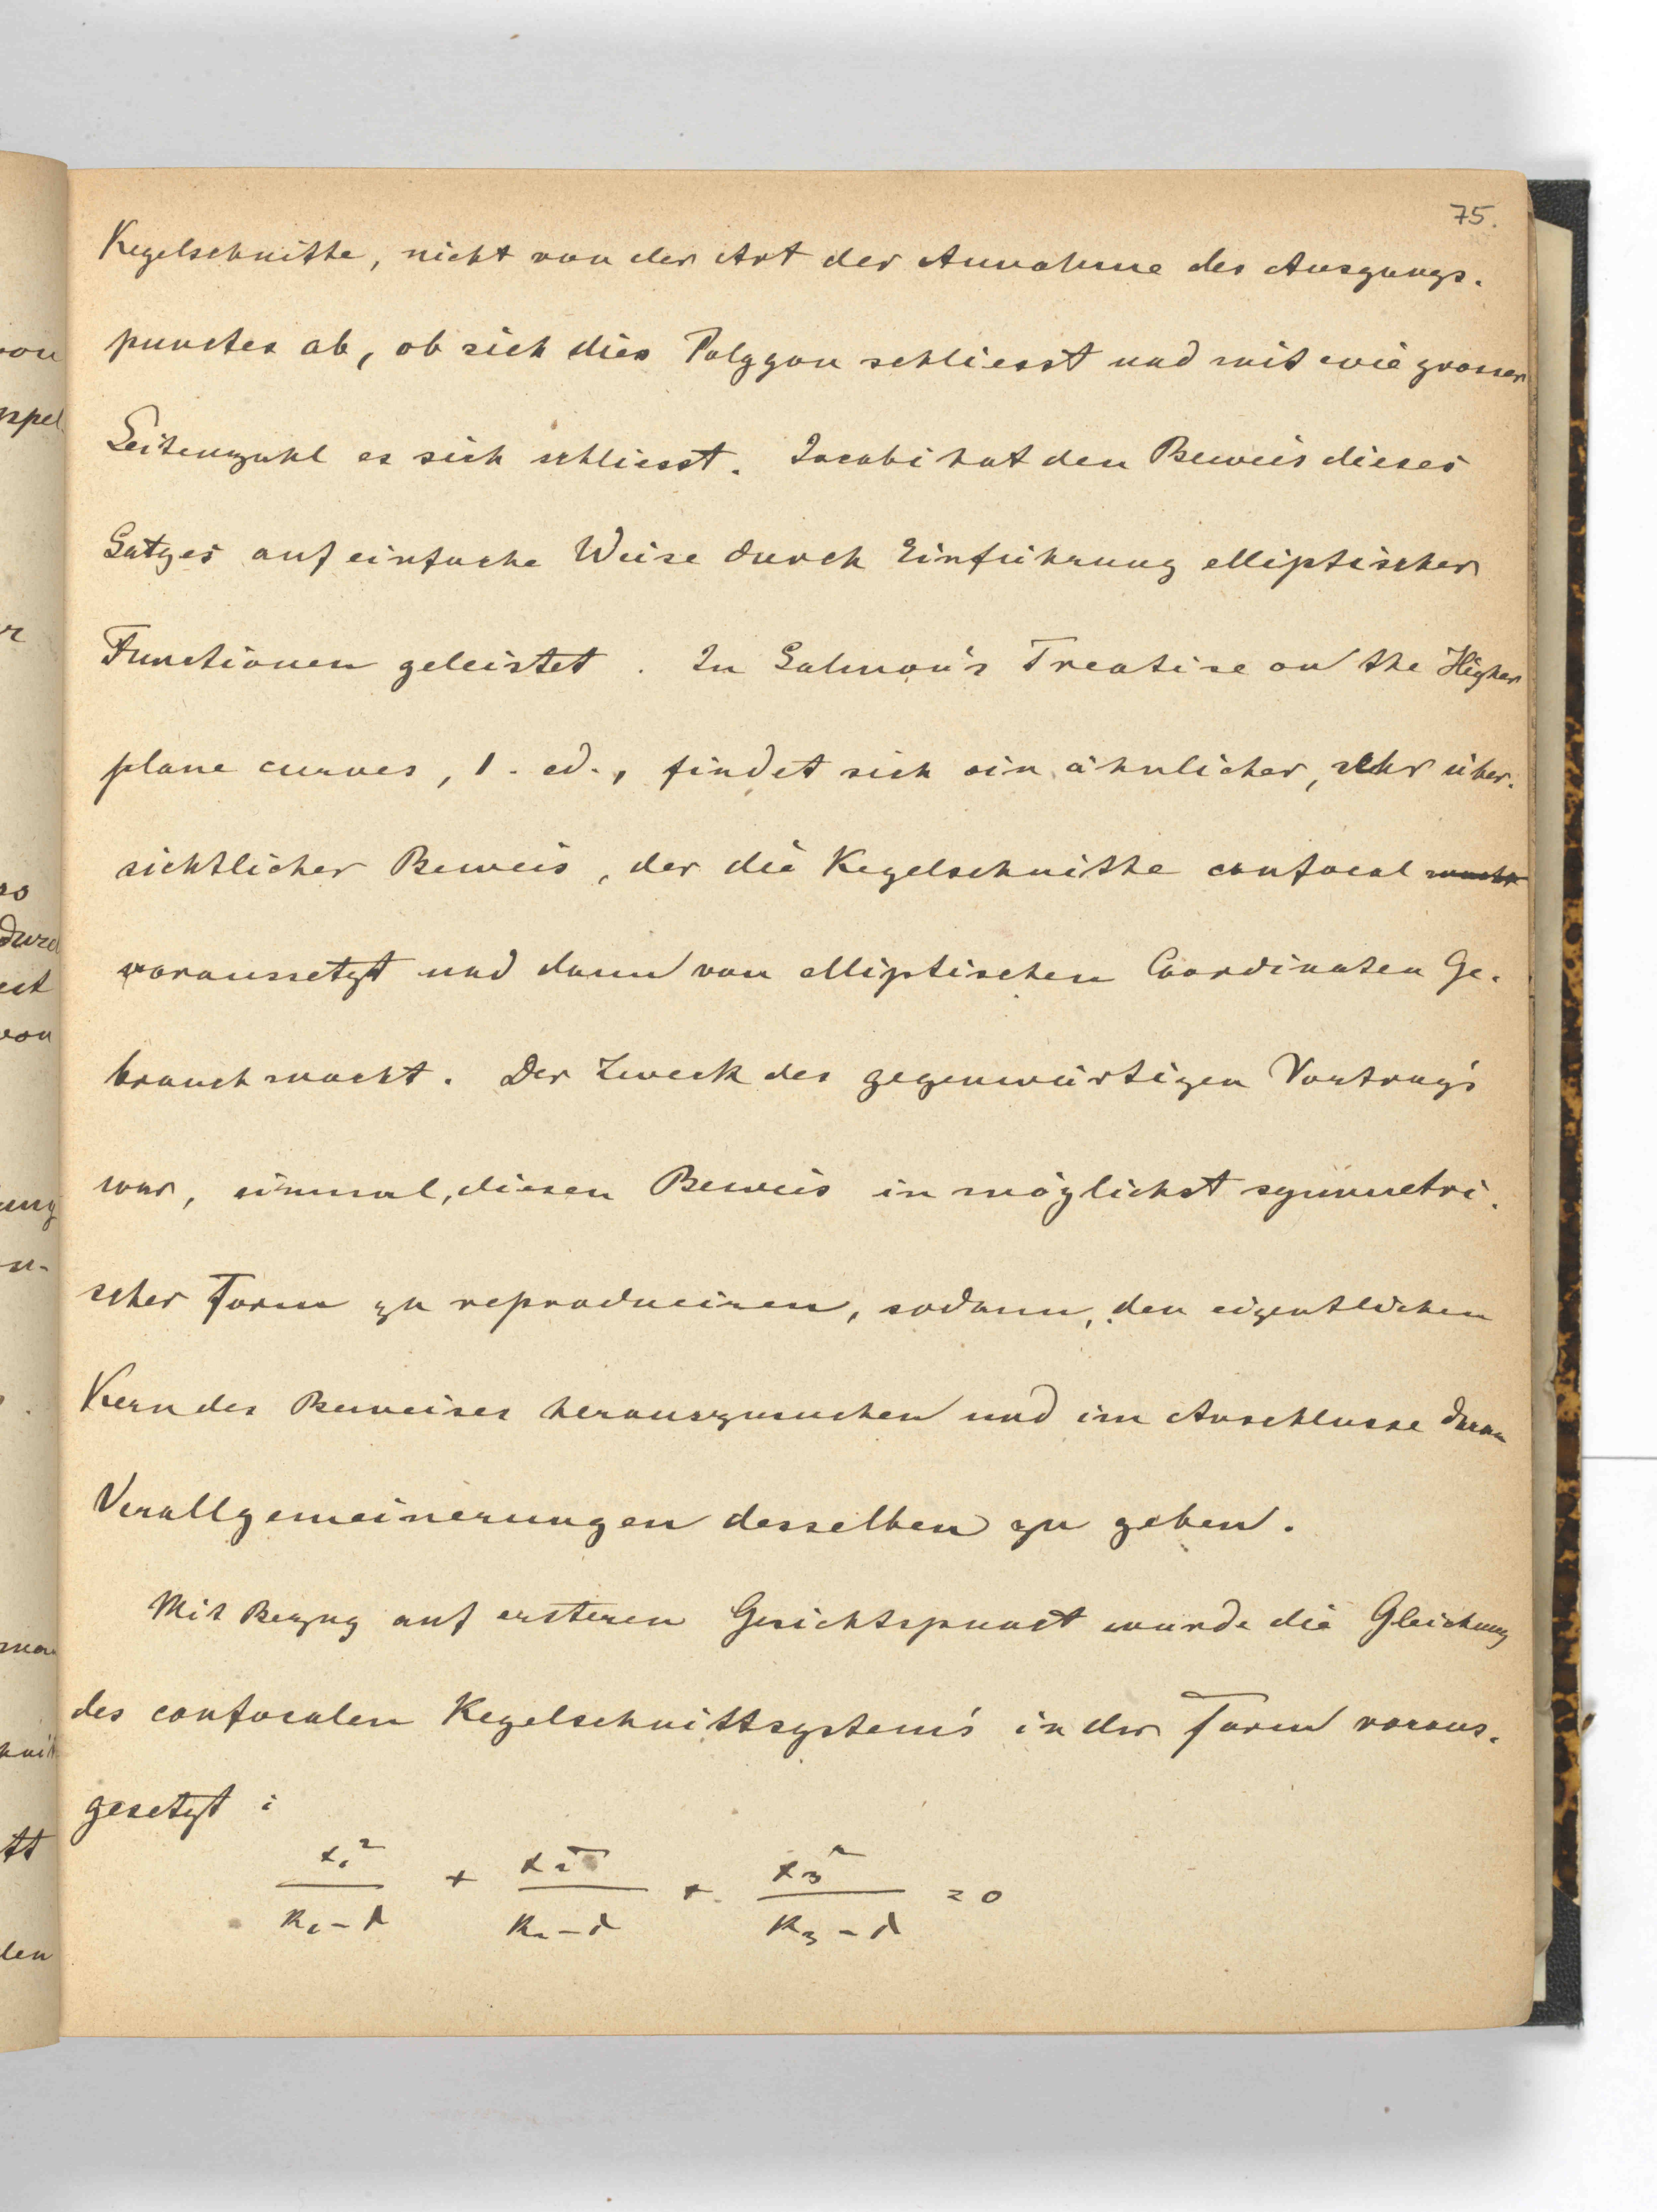 75.
Kegelschnitte, nicht von der Art der Annahme des Ausgangs-
punctes ab, ob sich dies Polygon schliesst und mit wie grosser
Seitenzahl es sich schliesst. Jacobi hat den Beweis dieses
Satzes auf einfache Weise durch Einführung elliptischer
Functionen geleistet. In Salmon's Treatise on the Higher
plane curves, 1. ed., findet sich ein ähnlicher, sehr über-
sichtlicher Beweis, der die Kegelschnitte confocal
voraussetzt und dann von elliptischen Coordinaten Ge-
brauch macht. Der Zweck des gegenwärtigen Vortrag's
war, einmal, diesen Beweis in möglichst symmetri-
scher Form zu reproduciren, sodann, den eigentlichen
Kern des Beweises herauszusuchen und im Anschlusse daran
Verallgemeinerungen desselben zu geben.
Mit Bezug auf ersteren Gesichtspunct wurde die Gleichung
des confocalen Kegelschnittsystem's in der Form voraus-
gesetzt:
x₁²/(k₁-λ) + x₂²/(k₂-λ) + x₃²/(k₃-λ) = 0
von
ppel
r
so
durch
est
von
ung
n-
man
hnitt
tt
len